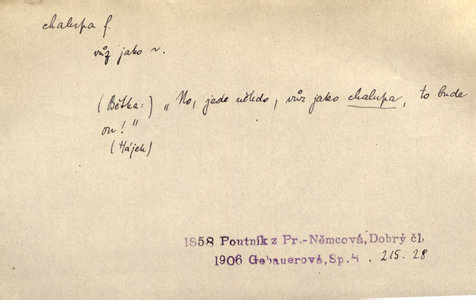 chalupa f.
vůz jako ~.
(Bětka:) „No, jede někdo, vůz jako chalupa, to bude
on!"
(Hájek)
1858 Poutník z Pr.-Němcová, Dobrý čl.
1906 Gebauerová, Sp.4. 215. 28